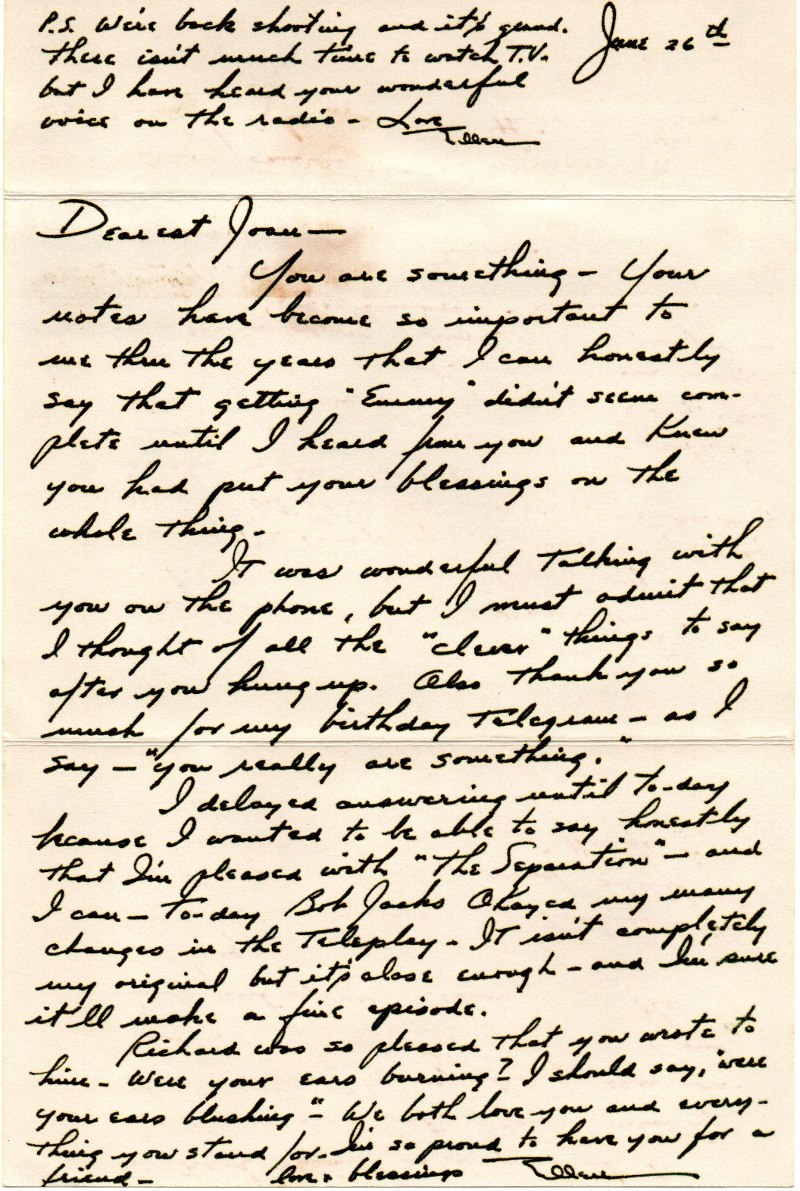 P.S. We're back shooting and it's grand.
June 26th
there isn't much time to watch T.V.
but I have heard your wonderful
voice on the radio - Love
Ellen
Dearest Joan —
You are something - Your
notes have become so important to
me thru the years that I can honestly
say that getting "Emmy" didn't seem com-
plete until I heard from you and knew
you had put your blessings on the
whole thing.
It was wonderful talking with
you on the phone, but I must admit that
I thought of all the "clever" things to say
after you hung up. Also thank you so
much for my birthday telegram - as I
say - "you really are something."
I delayed answering until to-day
because I wanted to be able to say honestly
that I'm pleased with "The Separation" - and
I can - to-day Bob Jacks Okayed my many
changes in the teleplay - It isn't completely
my original but it's close enough - and I'm sure
it'll make a fine episode.
Richard was so pleased that you wrote to
him - Were your ears burning? I should say, "were
your ears blushing" - We both love you and every-
thing you stand for. I'm so proud to have you for a
friend - love + blessings Ellen